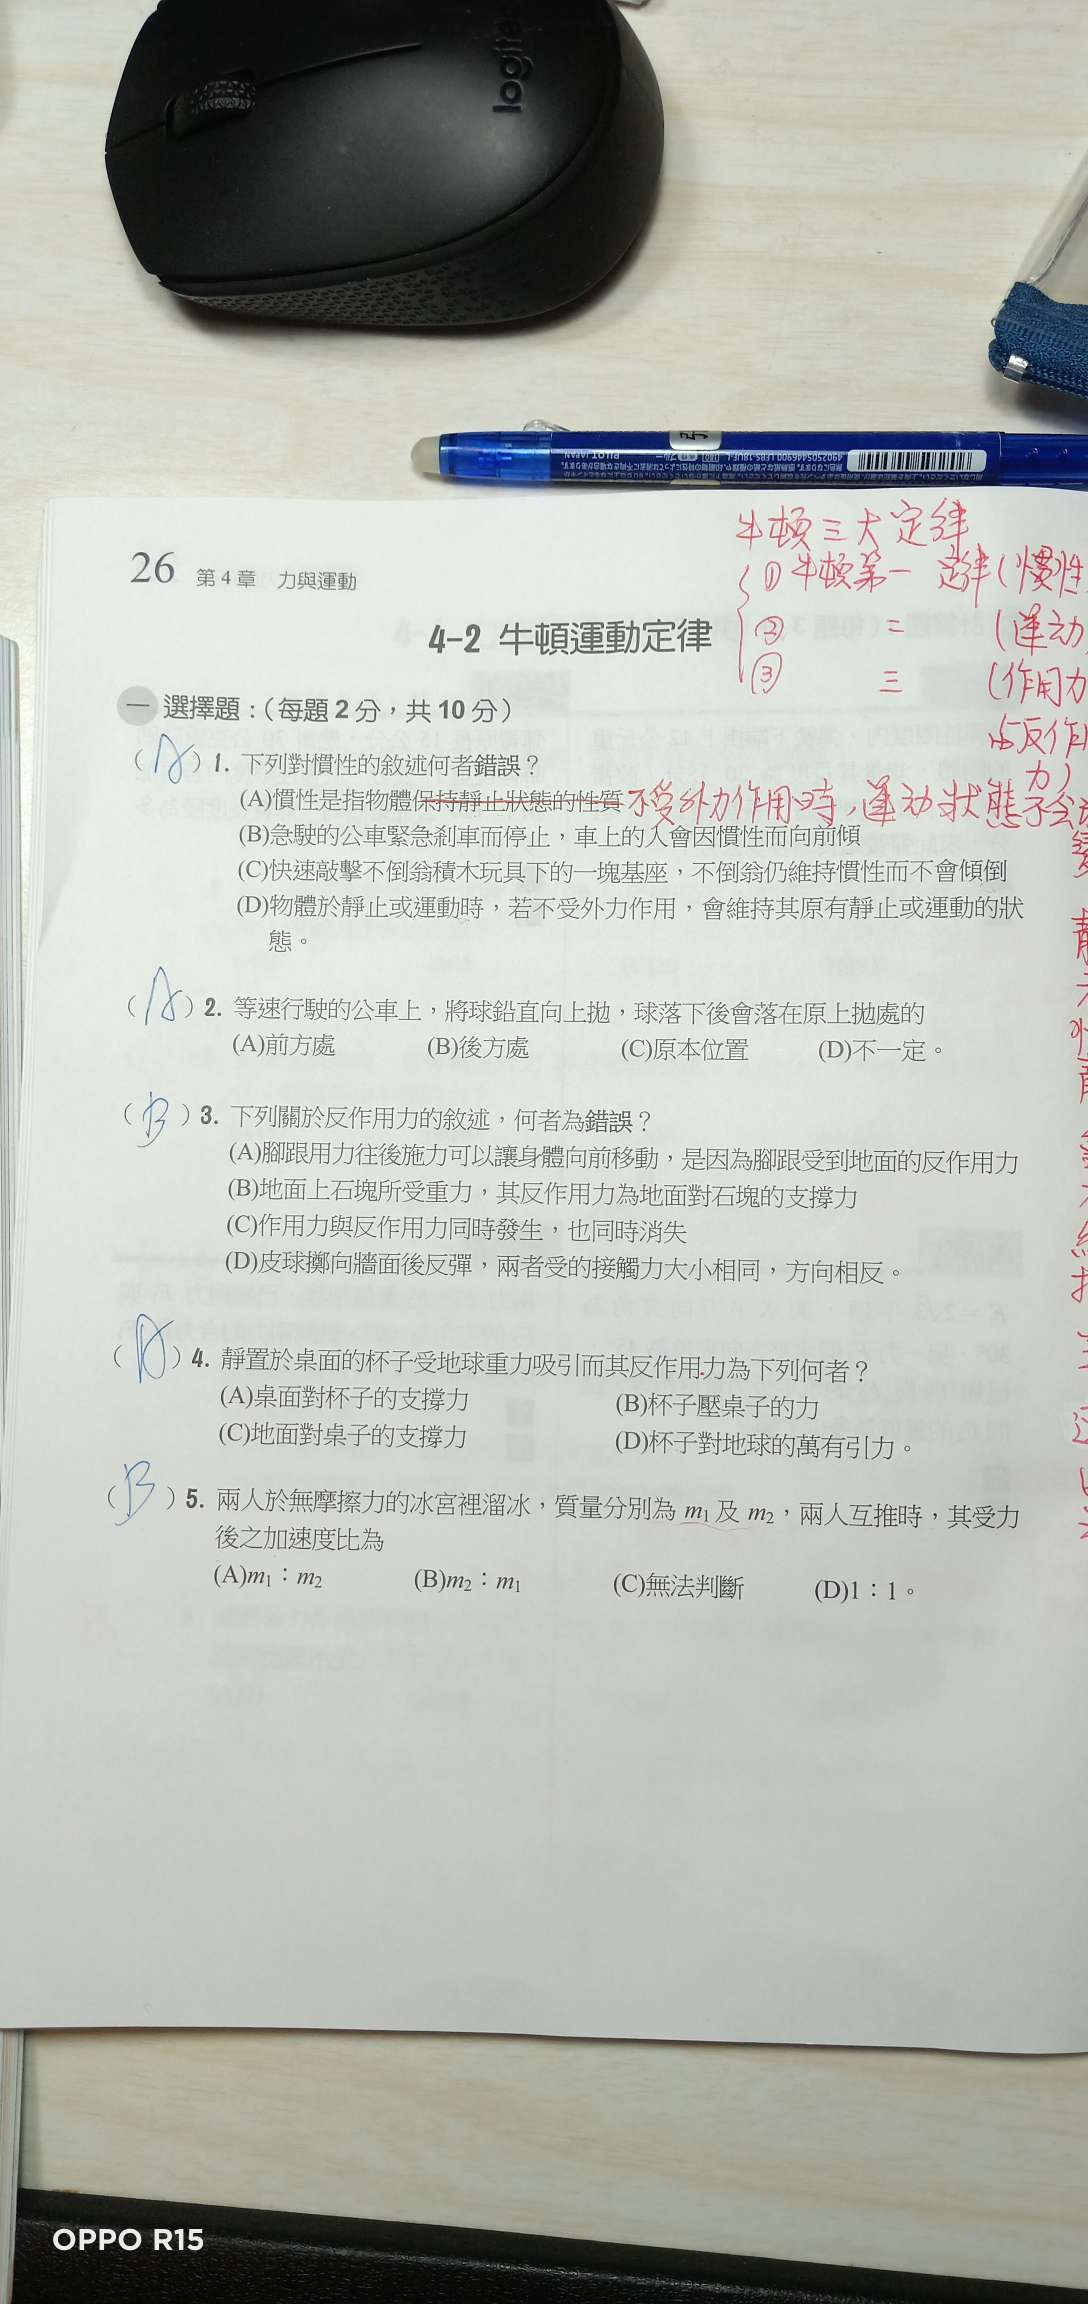 logitech
PILOT JAPAN
26 第4章 力與運動
牛頓三大定律
① 牛頓第一定律(慣性
② 二 (運动
③ 三 (作用力
与反作用
力)
4-2 牛頓運動定律
一 選擇題：(每題2分，共10分)
(A) 1. 下列對慣性的敘述何者錯誤？
(A)慣性是指物體保持靜止狀態的性質 不受外力作用時,運动狀態不会改
變
(B)急駛的公車緊急剎車而停止，車上的人會因慣性而向前傾
(C)快速敲擊不倒翁積木玩具下的一塊基座，不倒翁仍維持慣性而不會傾倒
(D)物體於靜止或運動時，若不受外力作用，會維持其原有靜止或運動的狀
態。
(A) 2. 等速行駛的公車上，將球鉛直向上拋，球落下後會落在原上拋處的
(A)前方處 (B)後方處 (C)原本位置 (D)不一定。
(B) 3. 下列關於反作用力的敘述，何者為錯誤？
(A)腳跟用力往後施力可以讓身體向前移動，是因為腳跟受到地面的反作用力
(B)地面上石塊所受重力，其反作用力為地面對石塊的支撐力
(C)作用力與反作用力同時發生，也同時消失
(D)皮球擲向牆面後反彈，兩者受的接觸力大小相同，方向相反。
(A) 4. 靜置於桌面的杯子受地球重力吸引而其反作用力為下列何者？
(A)桌面對杯子的支撐力 (B)杯子壓桌子的力
(C)地面對桌子的支撐力 (D)杯子對地球的萬有引力。
(B) 5. 兩人於無摩擦力的冰宮裡溜冰，質量分別為 m₁ 及 m₂，兩人互推時，其受力
後之加速度比為
(A)m₁：m₂ (B)m₂：m₁ (C)無法判斷 (D)1：1。
OPPO R15